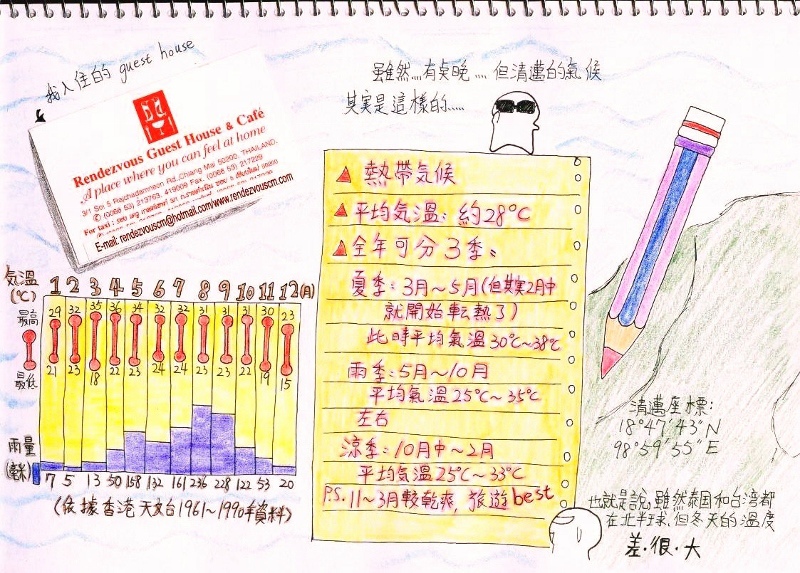 我入住的 guest house
Rendezvous Guest House & Café
A place where you can feel at home
3/1 Soi 5 Rajchadamnern Rd.,Chiang Mai 50200, THAILAND.
E-mail: rendezvouscm@hotmail.com/www.rendezvouscm.com
雖然... 有點晚.... 但清邁的氣候
其實是這樣的.....
▲ 熱帶気候
▲ 平均気溫: 約28°C
▲ 全年可分3季:
夏季: 3月~5月(但其実2月中
就開始転熱了)
此時平均氣溫30°C~38°C
雨季: 5月~10月
平均氣溫25°C~35°C
左右
涼季: 10月中~2月
平均気溫25°C~33°C
P.S. 11~3月較乾爽, 旅遊best
気溫 1 2 3 4 5 6 7 8 9 10 11 12(月)
(°C)
最高 29 32 35 36 34 32 32 31 31 31 30 23
最低 21 23 18 22 23 24 24 23 23 23 19 15
雨量
(毫米) 7 5 13 50 158 132 161 236 228 122 53 20
(依據香港天文台1961~1990年資料)
清邁座標:
18°47'43"N
98°59'55"E
也就是說, 雖然泰国和台湾都
在北半球, 但冬天的溫度
差·很·大